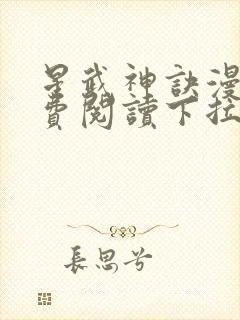 星武神訣漫
費閱讀下拉
長思兮